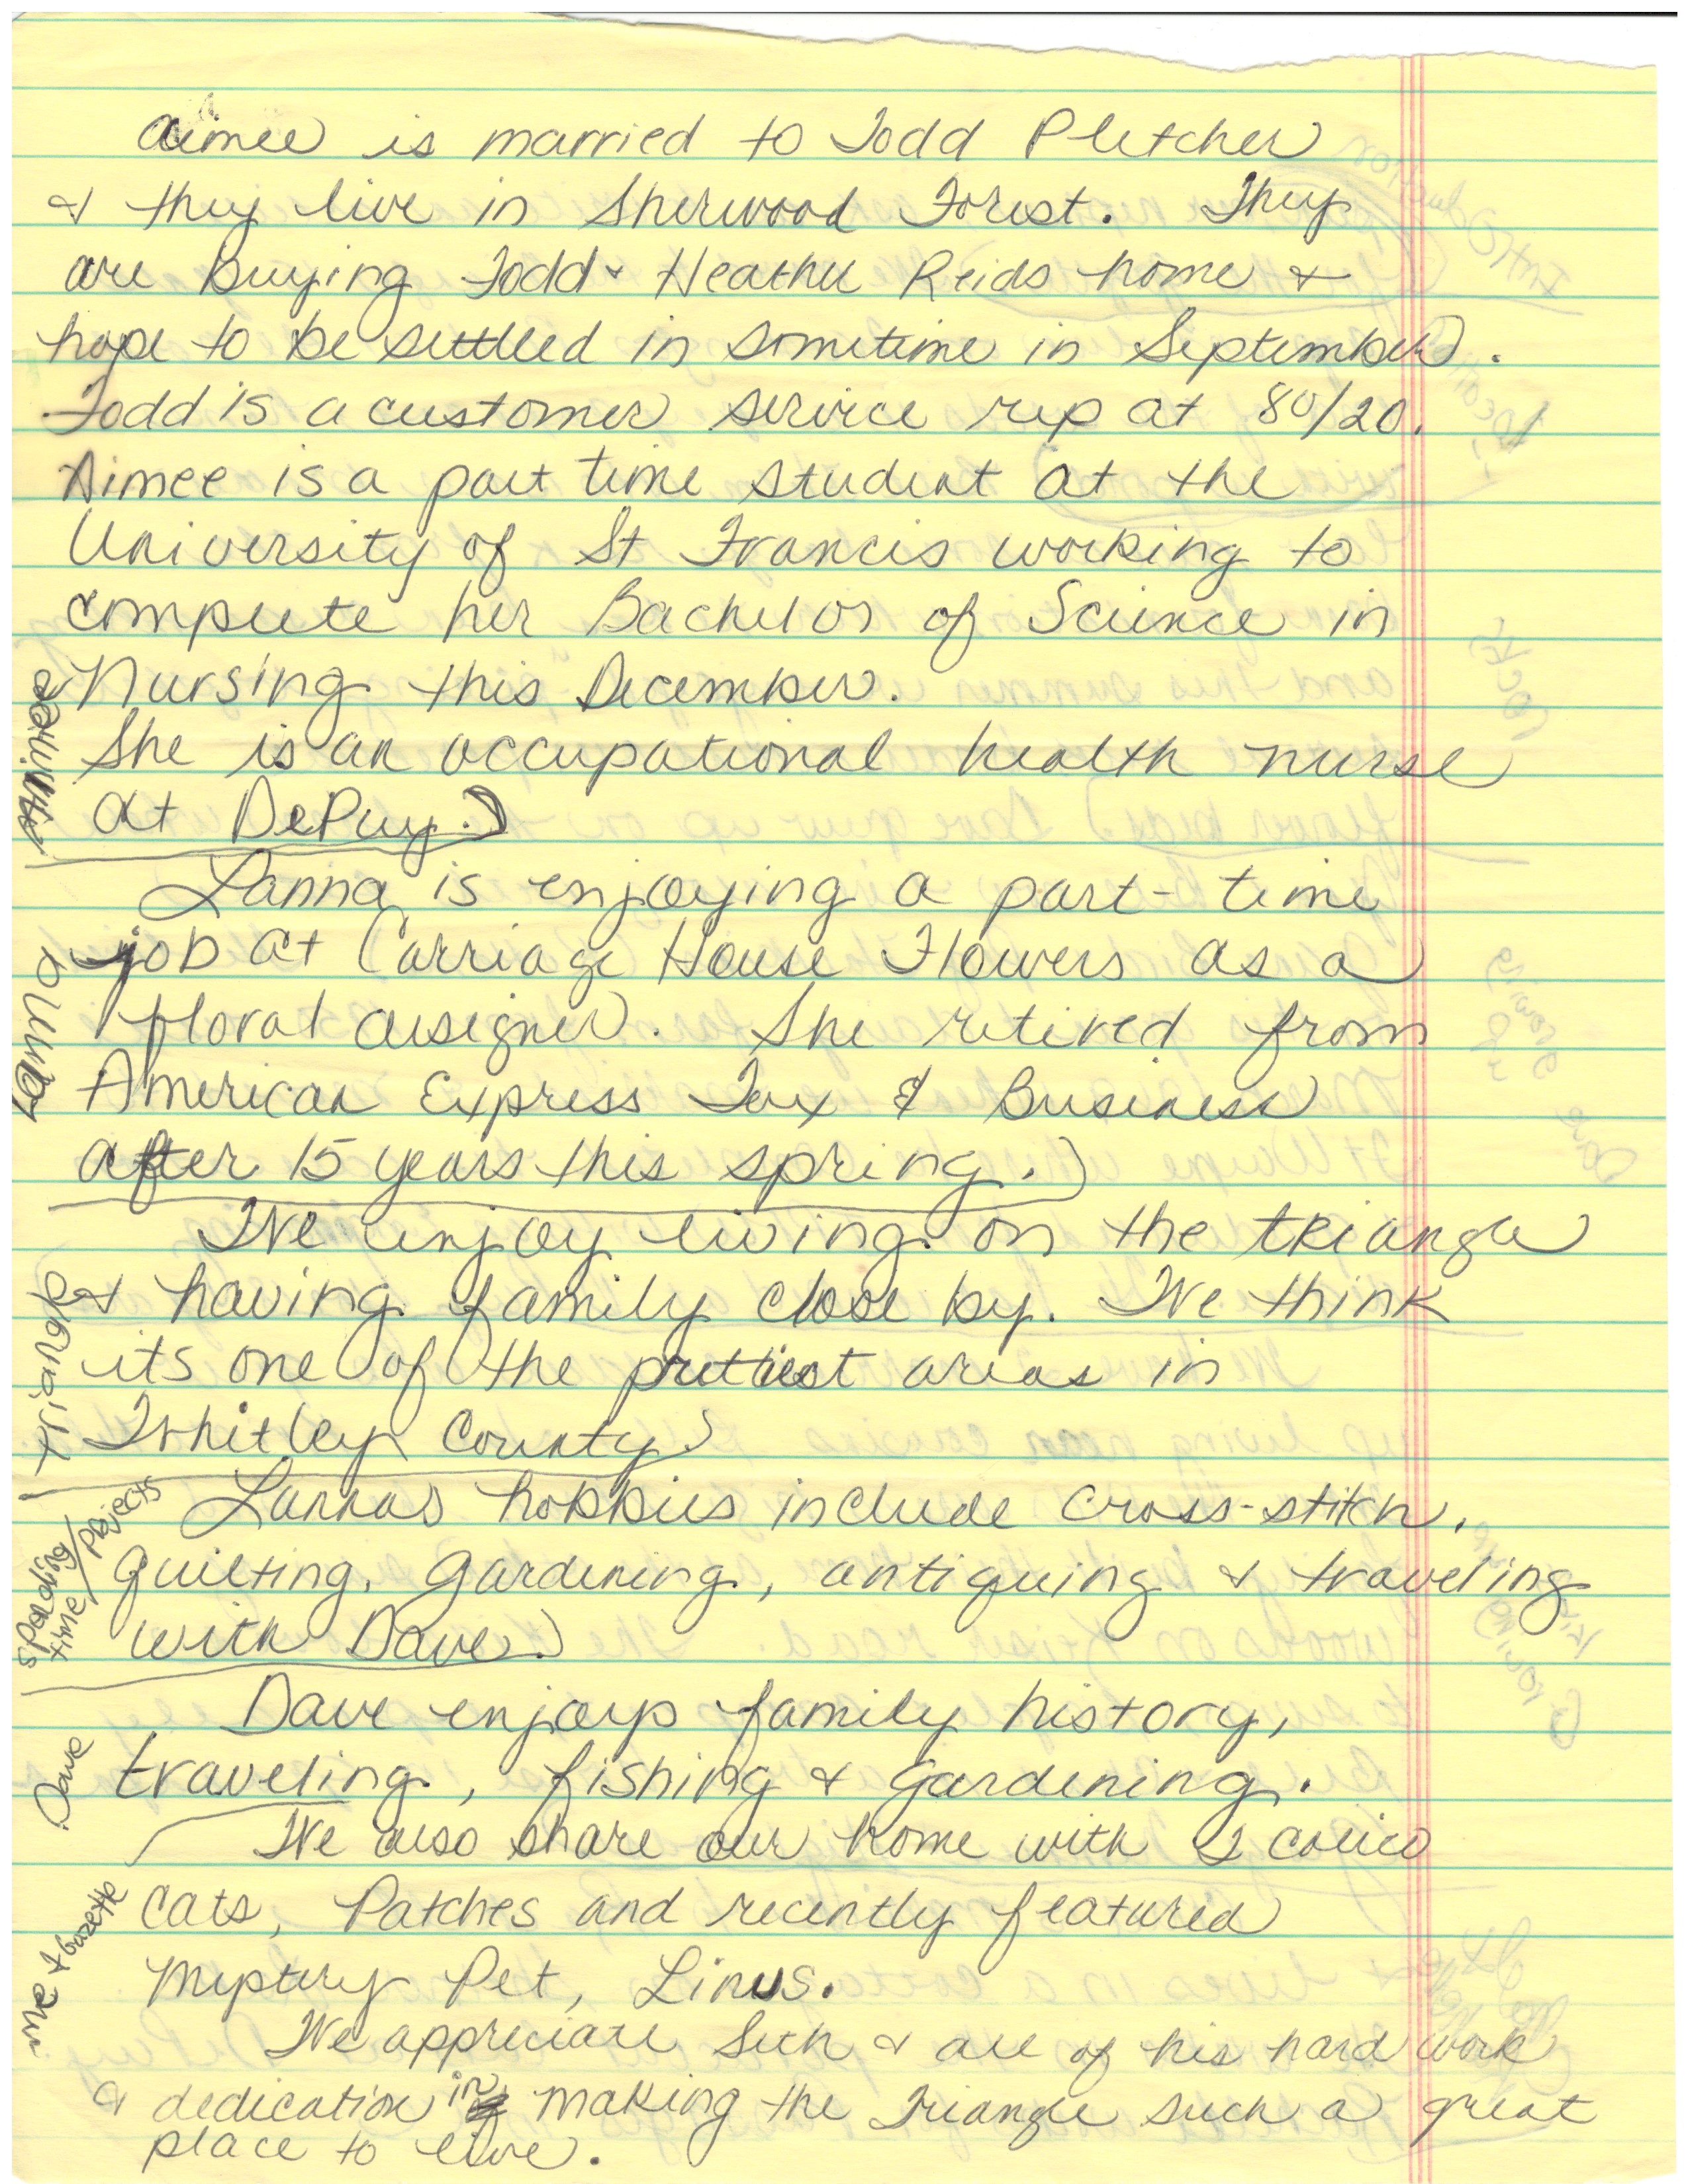 Aimee is married to Todd Pletcher
& they live in Sherwood Forest. They
are buying Todd & Heather Reids home &
hope to be settled in sometime in September.
Todd is a customer service rep at 80/20.
Aimee is a part time student at the
University of St Francis working to
complete her Bachelors of Science in
Nursing this December.
She is an occupational health nurse
at DePuy.)
Aimee
Lanna is enjoying a part-time
job at Carriage House Flowers as a
floral designer. She retired from
American Express Tax & Business
after 15 years this spring.)
Lanna
We enjoy living on the triangle
& having family close by. We think
its one of the prettiest areas in
Whitley County)
triangle
Lannas hobbies include cross-stitch,
quilting, gardening, antiquing & traveling
with Dave.)
spending
time/projects
Dave enjoys family history,
traveling, fishing & gardening.
Dave
We also share our home with 2 calico
cats, Patches and recently featured
Mystery Pet, Linus.
me & Gazette
We appreciate Seth & all of his hard work
& dedication in making the Triangle such a great
place to live.